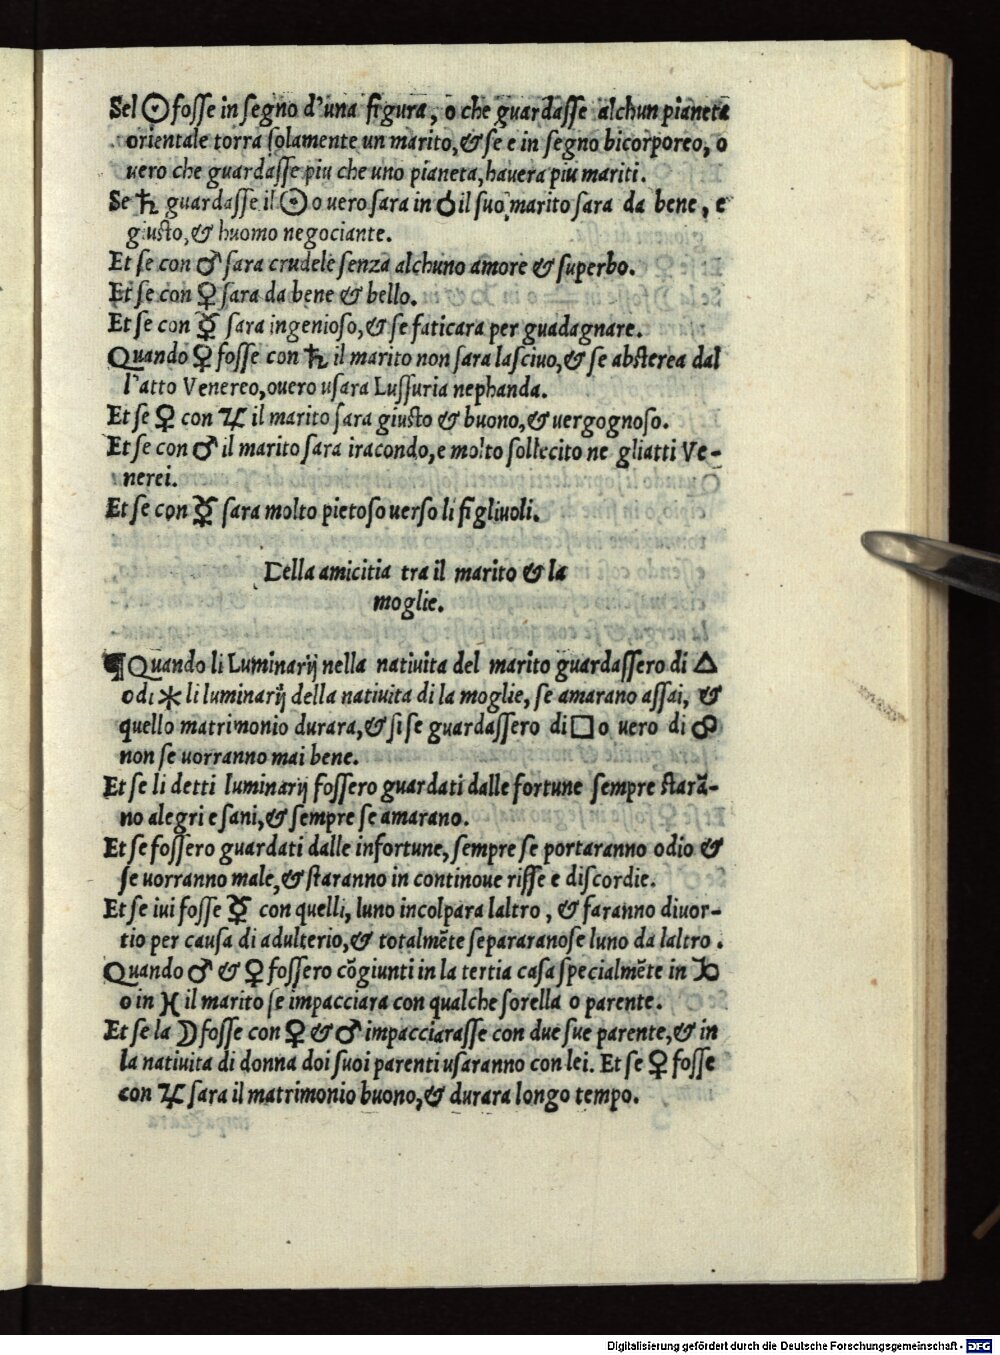 Sel ☉ fosse in segno d'una figura, o che guardasse alchun pianeta
orientale torra solamente un marito, & se e in segno bicorporeo, o
uero che guardasse piu che uno pianeta, hauera piu mariti.
Se ♄ guardasse il ☉ o uero sara in ☌ il suo marito sara da bene, e
giusto, & huomo negociante.
Et se con ♂ sara crudele senza alchuno amore & superbo.
Et se con ♀ sara da bene & bello.
Et se con ☿ sara ingenioso, & se faticara per guadagnare.
Quando ♀ fosse con ♄ il marito non sara lasciuo, & se absterea dal
l'atto Venereo, ouero usara Lussuria nephanda.
Et se ♀ con ♃ il marito sara giusto & buono, & uergognoso.
Et se con ♂ il marito sara iracondo, e molto sollecito ne gliatti Ve-
nerei.
Et se con ☿ sara molto pietoso uerso li figliuoli.
Della amicitia tra il marito & la
moglie.
¶ Quando li Luminarij nella natiuita del marito guardassero di △
o di ⚹ li luminarij della natiuita di la moglie, se amarano assai, &
quello matrimonio durara, & si se guardassero di □ o uero di ☍
non se uorranno mai bene.
Et se li detti luminarij fossero guardati dalle fortune sempre starã-
no alegri e sani, & sempre se amarano.
Et se fossero guardati dalle infortune, sempre se portaranno odio &
se uorranno male, & staranno in continoue risse e discordie.
Et se iui fosse ☿ con quelli, luno incolpara laltro, & faranno diuor-
tio per causa di adulterio, & totalmẽte separaranose luno da laltro.
Quando ♂ & ♀ fossero cõgiunti in la tertia casa specialmẽte in ♑
o in ♓ il marito se impacciara con qualche sorella o parente.
Et se la ☽ fosse con ♀ & ♂ impacciarasse con due sue parente, & in
la natiuita di donna doi suoi parenti usaranno con lei. Et se ♀ fosse
con ♃ sara il matrimonio buono, & durara longo tempo.
Digitalisierung gefördert durch die Deutsche Forschungsgemeinschaft - DFG